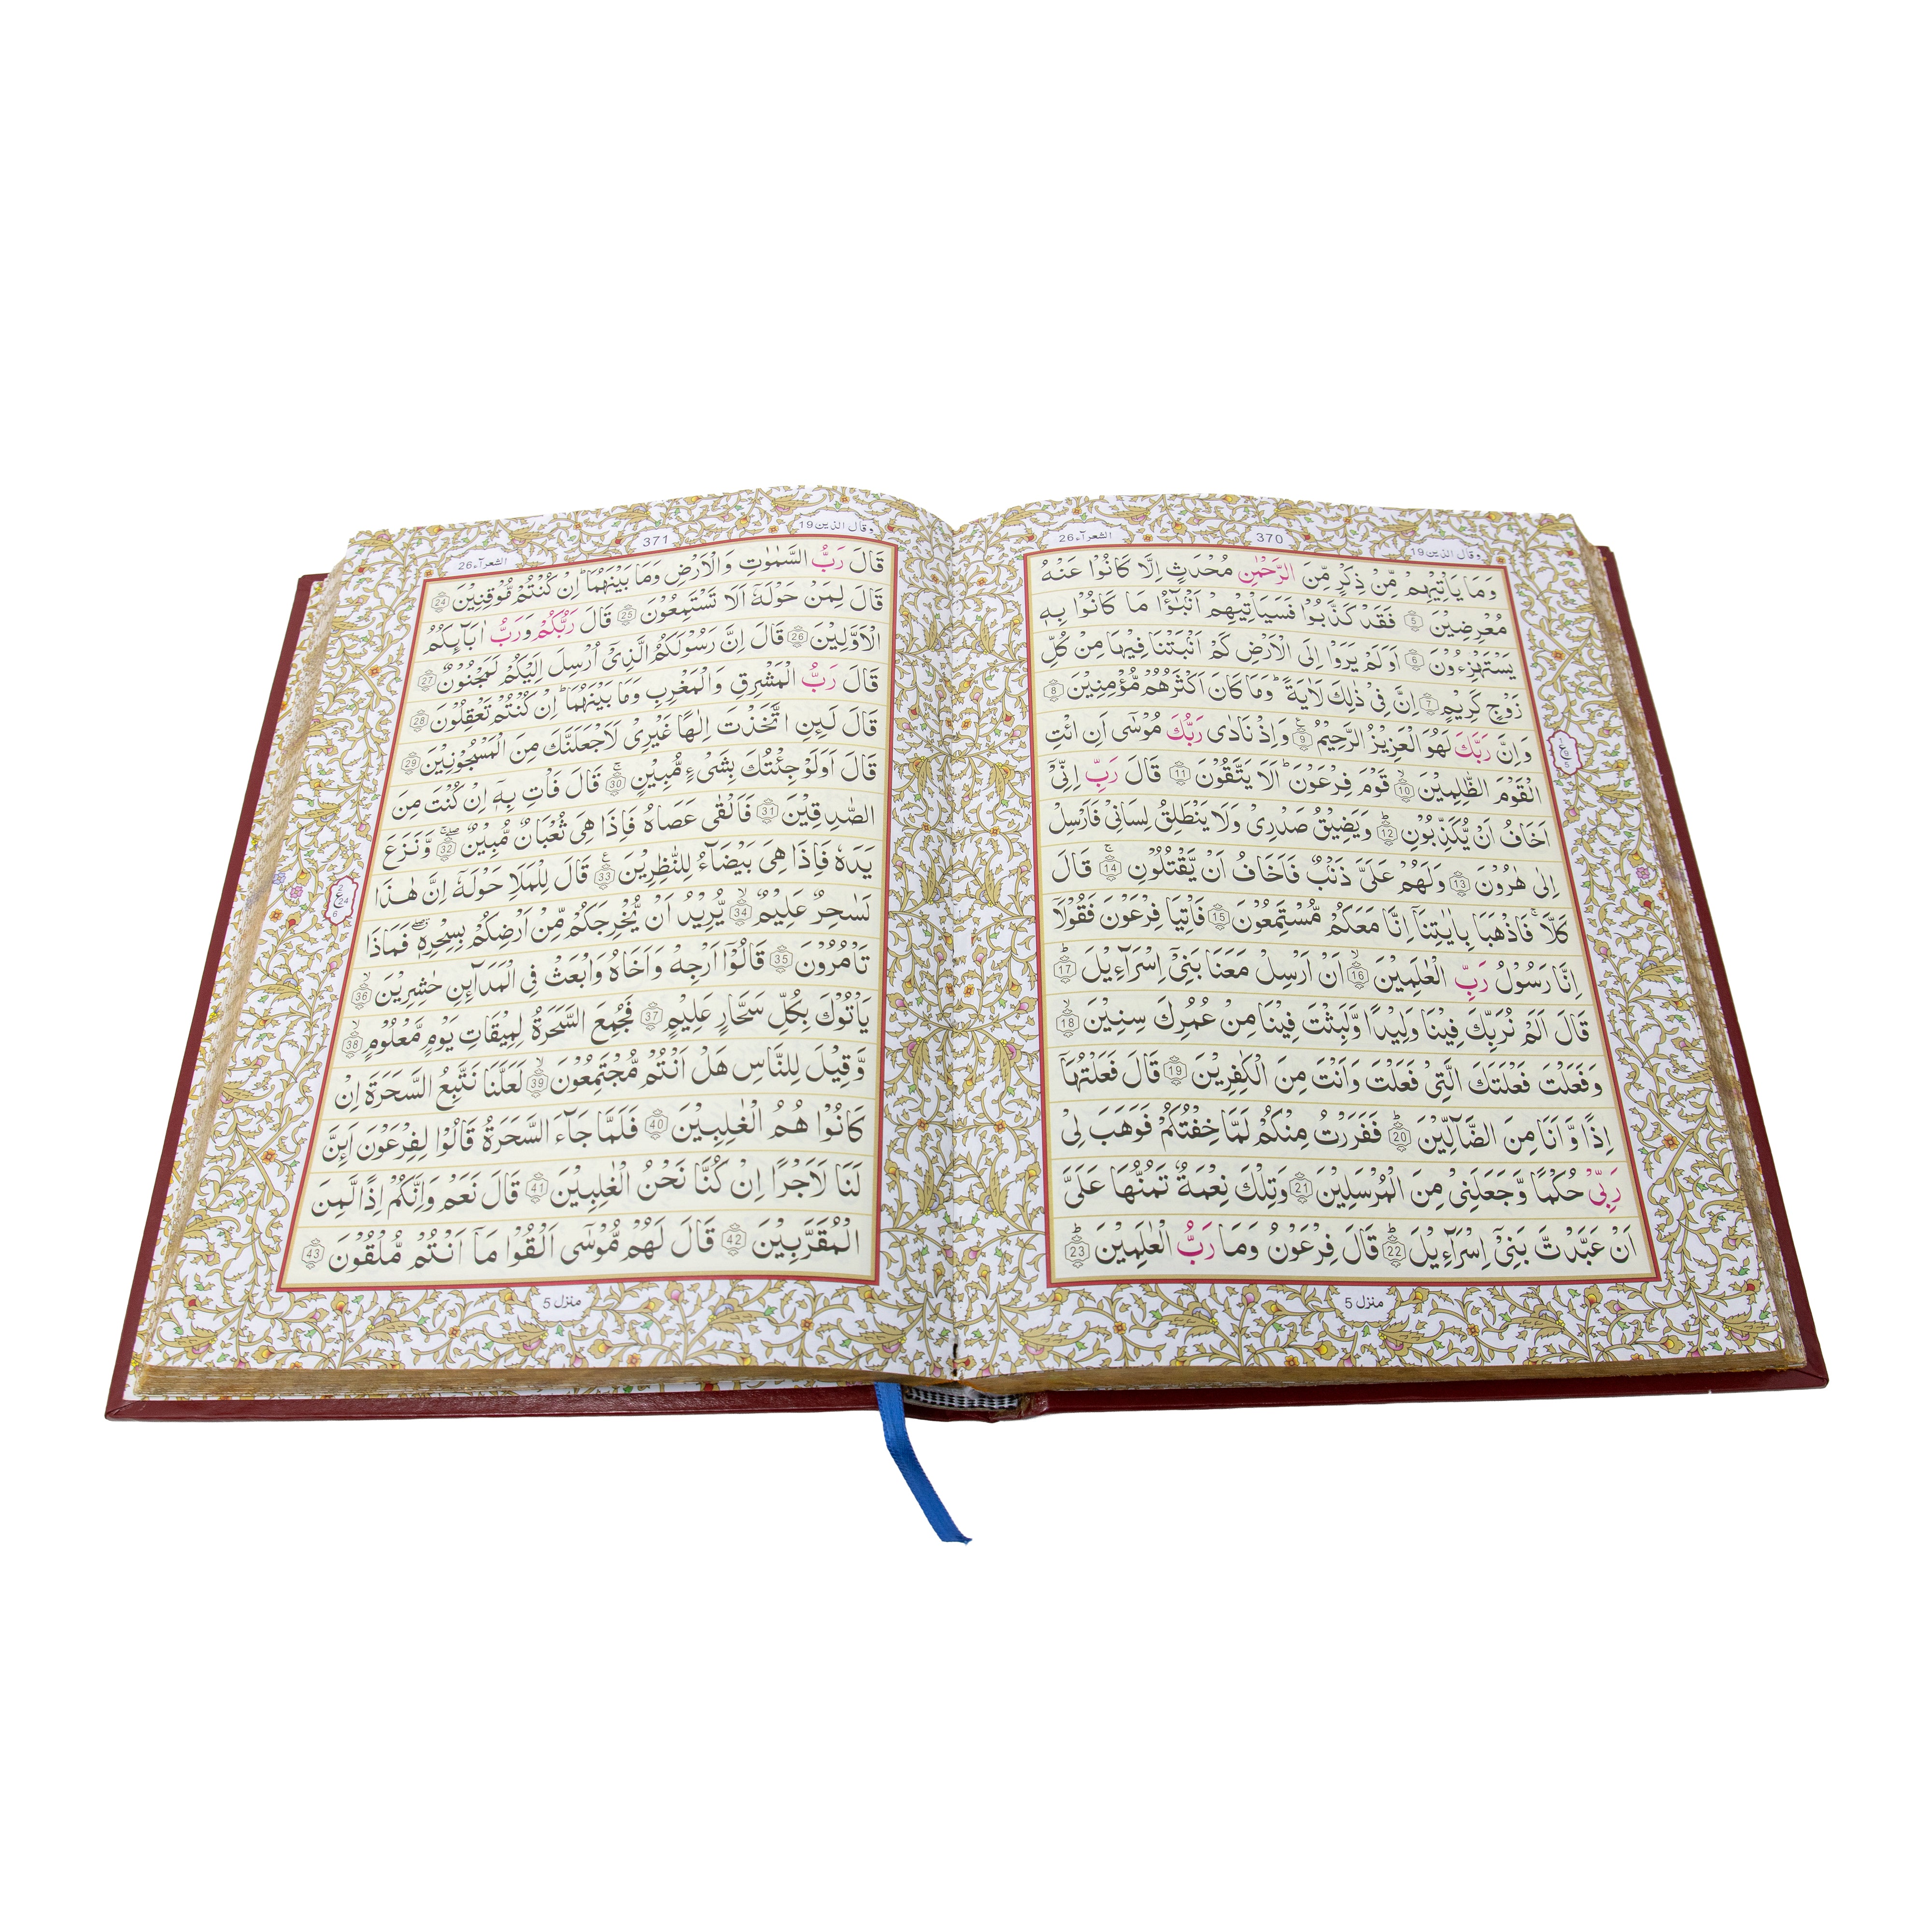 وقال الذين 19
370
الشعرآء 26
وَمَا يَاْتِيْهِمْ مِّنْ ذِكْرٍ مِّنَ الرَّحْمٰنِ مُحْدَثٍ اِلَّا كَانُوْا عَنْهُ
مُعْرِضِيْنَ 5 فَقَدْ كَذَّبُوْا فَسَيَاْتِيْهِمْ اَنْۢبٰٓؤُا مَا كَانُوْا بِهٖ
يَسْتَهْزِءُوْنَ 6 اَوَلَمْ يَرَوْا اِلَى الْاَرْضِ كَمْ اَنْۢبَتْنَا فِيْهَا مِنْ كُلِّ
زَوْجٍ كَرِيْمٍ 7 اِنَّ فِيْ ذٰلِكَ لَاٰيَةً ؕ وَمَا كَانَ اَكْثَرُهُمْ مُّؤْمِنِيْنَ 8
وَاِنَّ رَبَّكَ لَهُوَ الْعَزِيْزُ الرَّحِيْمُ 9 وَاِذْ نَادٰى رَبُّكَ مُوْسٰٓى اَنِ ائْتِ
الْقَوْمَ الظّٰلِمِيْنَ 10 قَوْمَ فِرْعَوْنَ ؕ اَلَا يَتَّقُوْنَ 11 قَالَ رَبِّ اِنِّيْٓ
اَخَافُ اَنْ يُّكَذِّبُوْنِ 12 وَيَضِيْقُ صَدْرِيْ وَلَا يَنْطَلِقُ لِسَانِيْ فَاَرْسِلْ
اِلٰى هٰرُوْنَ 13 وَلَهُمْ عَلَيَّ ذَنْۢبٌ فَاَخَافُ اَنْ يَّقْتُلُوْنِ 14 قَالَ
كَلَّا ۚ فَاذْهَبَا بِاٰيٰتِنَآ اِنَّا مَعَكُمْ مُّسْتَمِعُوْنَ 15 فَاْتِيَا فِرْعَوْنَ فَقُوْلَآ
اِنَّا رَسُوْلُ رَبِّ الْعٰلَمِيْنَ 16 اَنْ اَرْسِلْ مَعَنَا بَنِيْٓ اِسْرَآءِيْلَ 17
قَالَ اَلَمْ نُرَبِّكَ فِيْنَا وَلِيْدًا وَّلَبِثْتَ فِيْنَا مِنْ عُمُرِكَ سِنِيْنَ 18
وَفَعَلْتَ فَعْلَتَكَ الَّتِيْ فَعَلْتَ وَاَنْتَ مِنَ الْكٰفِرِيْنَ 19 قَالَ فَعَلْتُهَآ
اِذًا وَّاَنَا مِنَ الضَّآلِّيْنَ 20 فَفَرَرْتُ مِنْكُمْ لَمَّا خِفْتُكُمْ فَوَهَبَ لِيْ
رَبِّيْ حُكْمًا وَّجَعَلَنِيْ مِنَ الْمُرْسَلِيْنَ 21 وَتِلْكَ نِعْمَةٌ تَمُنُّهَا عَلَيَّ
اَنْ عَبَّدْتَّ بَنِيْٓ اِسْرَآءِيْلَ 22 قَالَ فِرْعَوْنُ وَمَا رَبُّ الْعٰلَمِيْنَ 23
منزل 5
وقال الذين 19
371
الشعرآء 26
قَالَ رَبُّ السَّمٰوٰتِ وَالْاَرْضِ وَمَا بَيْنَهُمَا ؕ اِنْ كُنْتُمْ مُّوْقِنِيْنَ 24
قَالَ لِمَنْ حَوْلَهٗٓ اَلَا تَسْتَمِعُوْنَ 25 قَالَ رَبُّكُمْ وَرَبُّ اٰبَآئِكُمُ
الْاَوَّلِيْنَ 26 قَالَ اِنَّ رَسُوْلَكُمُ الَّذِيْٓ اُرْسِلَ اِلَيْكُمْ لَمَجْنُوْنٌ 27
قَالَ رَبُّ الْمَشْرِقِ وَالْمَغْرِبِ وَمَا بَيْنَهُمَا ؕ اِنْ كُنْتُمْ تَعْقِلُوْنَ 28
قَالَ لَئِنِ اتَّخَذْتَ اِلٰهًا غَيْرِيْ لَاَجْعَلَنَّكَ مِنَ الْمَسْجُوْنِيْنَ 29
قَالَ اَوَلَوْ جِئْتُكَ بِشَيْءٍ مُّبِيْنٍ 30 قَالَ فَاْتِ بِهٖٓ اِنْ كُنْتَ مِنَ
الصّٰدِقِيْنَ 31 فَاَلْقٰى عَصَاهُ فَاِذَا هِيَ ثُعْبَانٌ مُّبِيْنٌ 32 وَّنَزَعَ
يَدَهٗ فَاِذَا هِيَ بَيْضَآءُ لِلنّٰظِرِيْنَ 33 قَالَ لِلْمَلَاِ حَوْلَهٗٓ اِنَّ هٰذَا
لَسٰحِرٌ عَلِيْمٌ 34 يُّرِيْدُ اَنْ يُّخْرِجَكُمْ مِّنْ اَرْضِكُمْ بِسِحْرِهٖ فَمَاذَا
تَاْمُرُوْنَ 35 قَالُوْٓا اَرْجِهْ وَاَخَاهُ وَابْعَثْ فِي الْمَدَآئِنِ حٰشِرِيْنَ 36
يَاْتُوْكَ بِكُلِّ سَحَّارٍ عَلِيْمٍ 37 فَجُمِعَ السَّحَرَةُ لِمِيْقَاتِ يَوْمٍ مَّعْلُوْمٍ 38
وَّقِيْلَ لِلنَّاسِ هَلْ اَنْتُمْ مُّجْتَمِعُوْنَ 39 لَعَلَّنَا نَتَّبِعُ السَّحَرَةَ اِنْ
كَانُوْا هُمُ الْغٰلِبِيْنَ 40 فَلَمَّا جَآءَ السَّحَرَةُ قَالُوْا لِفِرْعَوْنَ اَئِنَّ
لَنَا لَاَجْرًا اِنْ كُنَّا نَحْنُ الْغٰلِبِيْنَ 41 قَالَ نَعَمْ وَاِنَّكُمْ اِذًا لَّمِنَ
الْمُقَرَّبِيْنَ 42 قَالَ لَهُمْ مُّوْسٰٓى اَلْقُوْا مَآ اَنْتُمْ مُّلْقُوْنَ 43
منزل 5